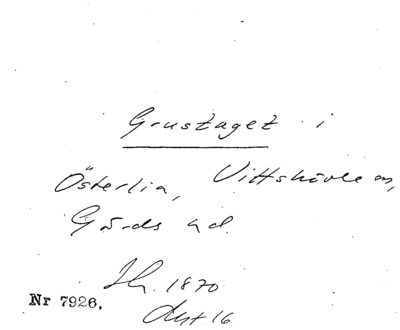 Grustaget i
Österlin, Vittskövle sn,
Gärds hd.
Ih. 1870
Nr 7926.
16